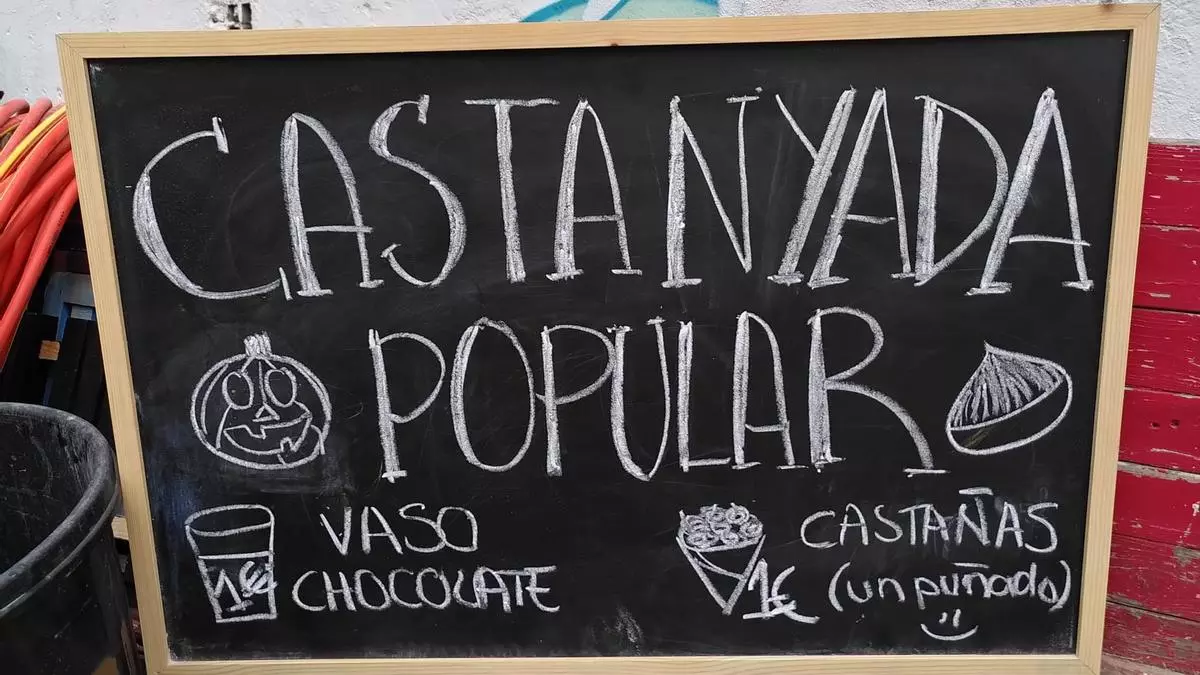 CASTANYADA
POPULAR
VASO
CHOCOLATE
1€
CASTAÑAS
(un puñado)
1€